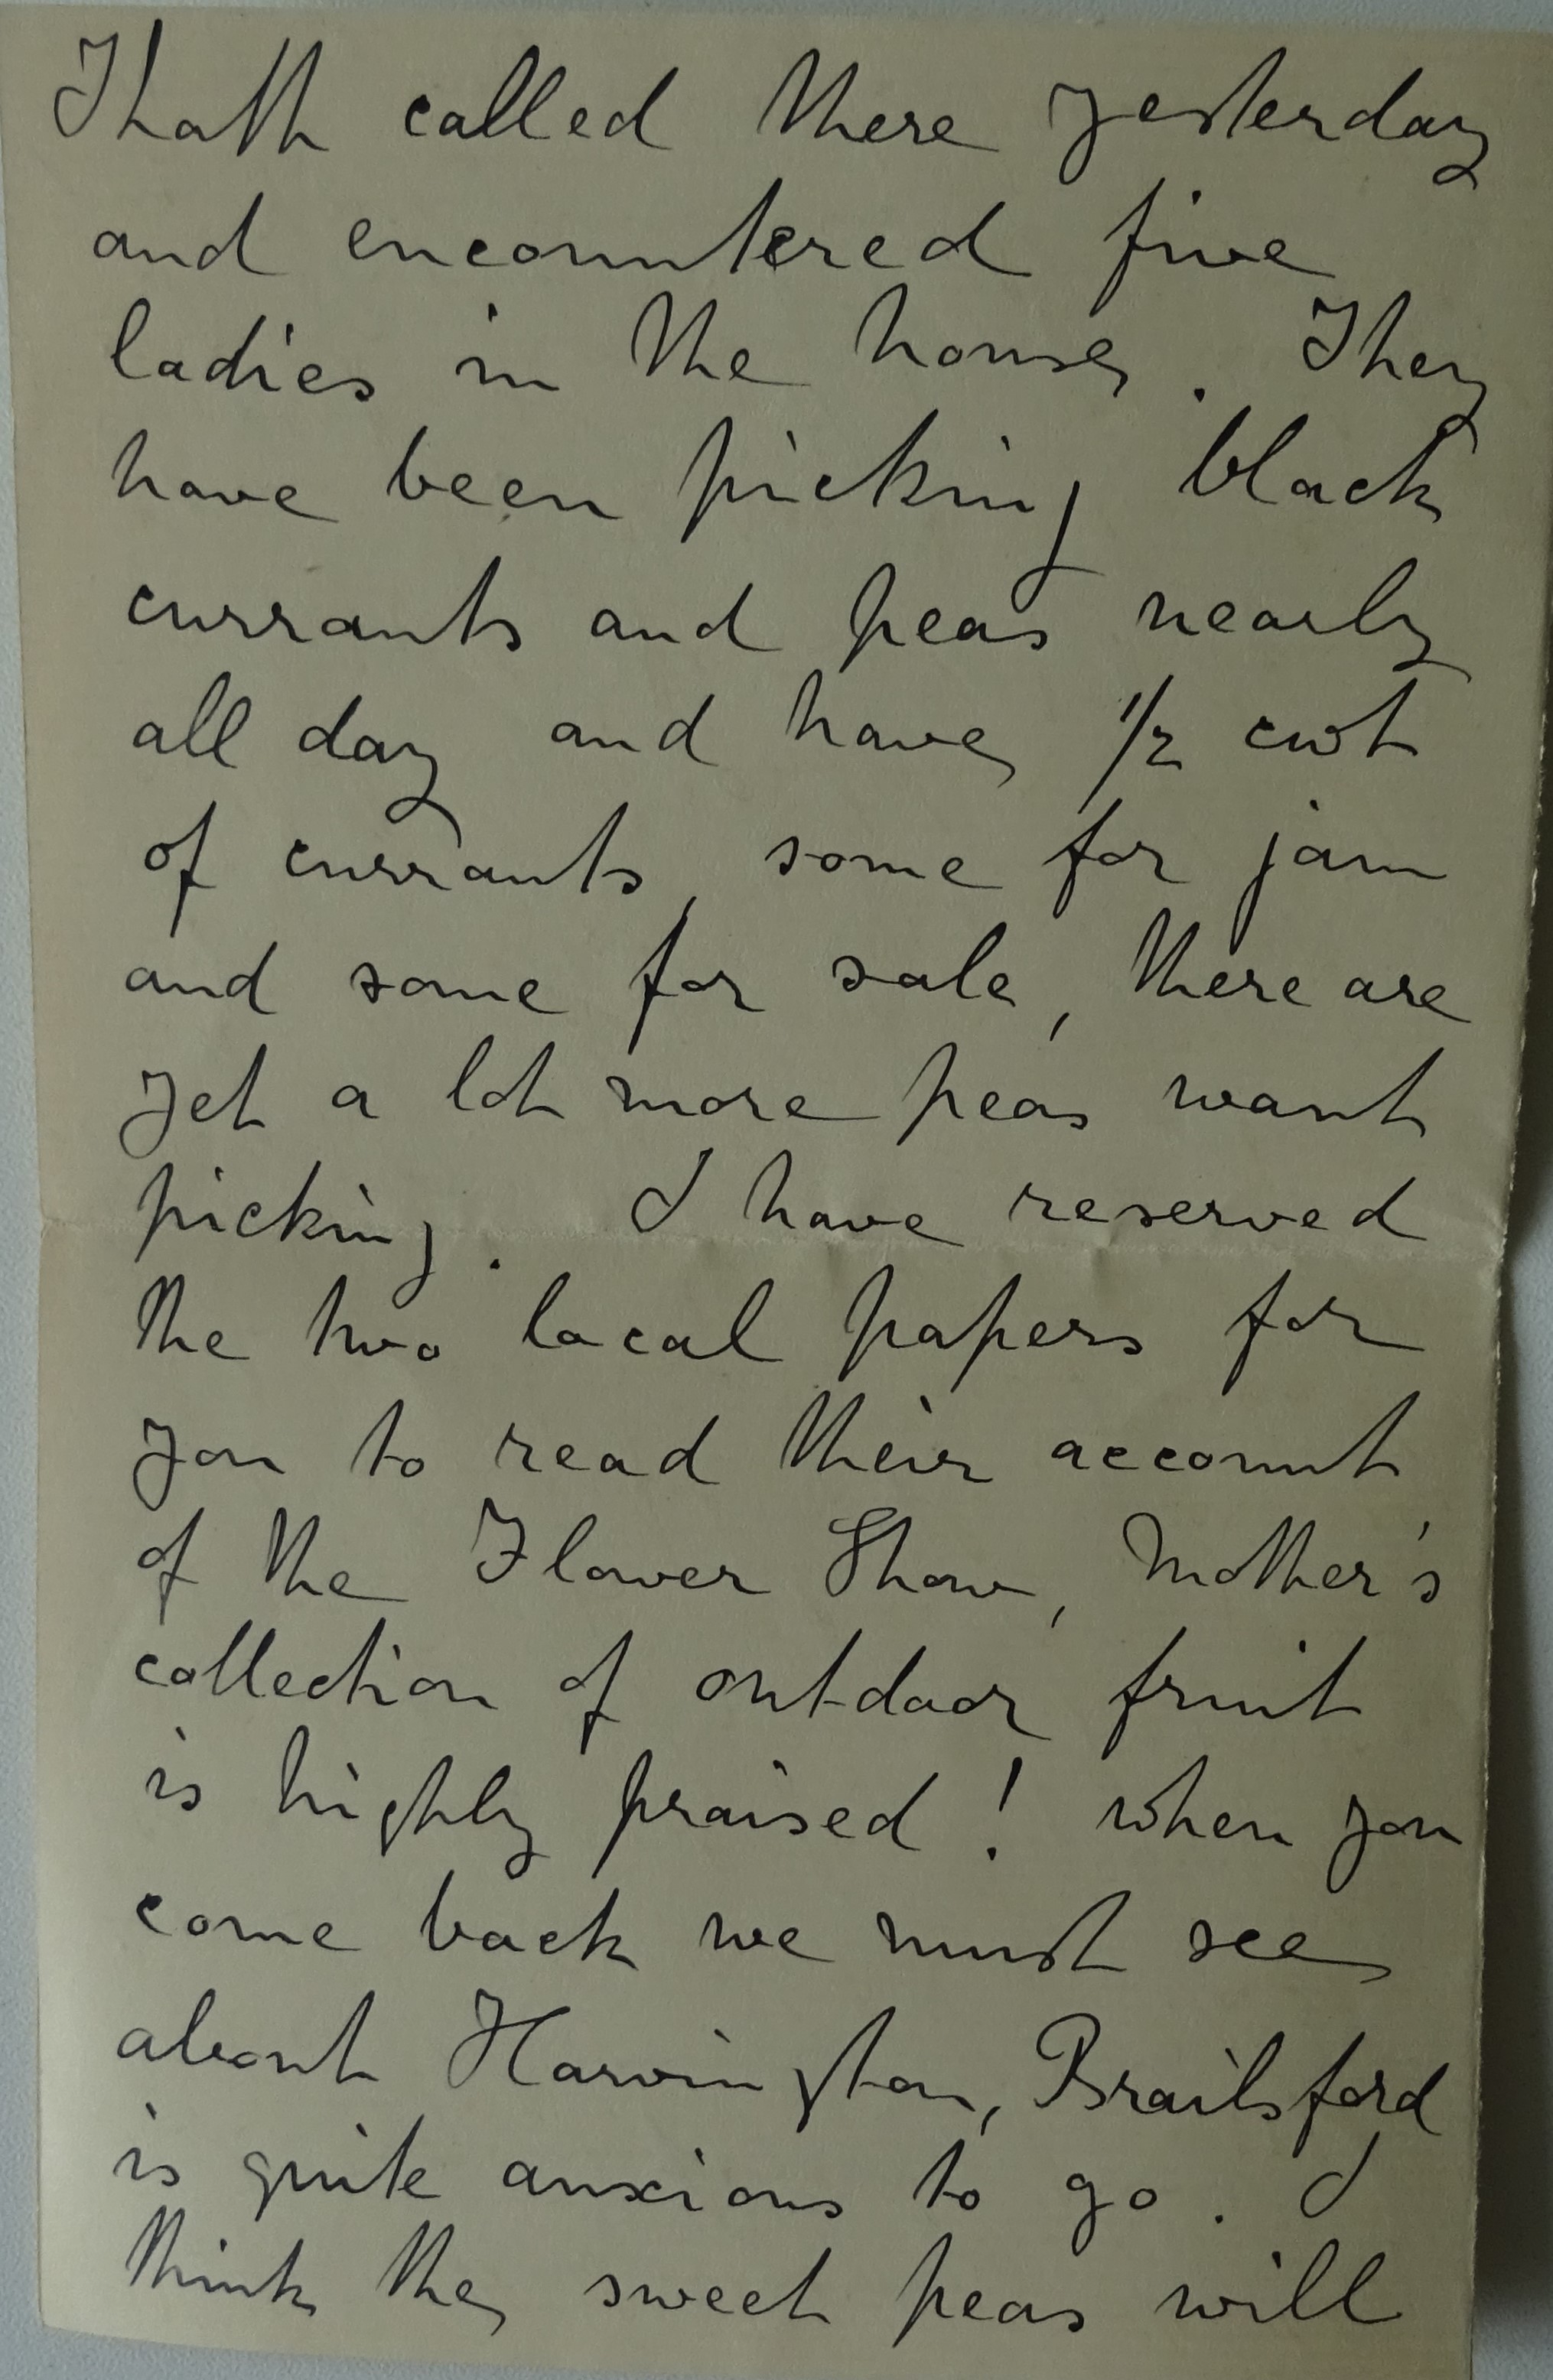 Thatt called there yesterday
and encountered five
ladies in the house. They
have been picking black
currants and peas nearly
all day and have 1/2 cwt
of currants, some for jam
and some for sale, there are
yet a lot more peas want
picking. I have reserved
the two local papers for
you to read their account
of the Flower Show, Mother's
collection of out-door fruit
is highly praised! when you
come back we must see
about Harvington, Brailsford
is quite anxious to go. I
think the sweet peas will